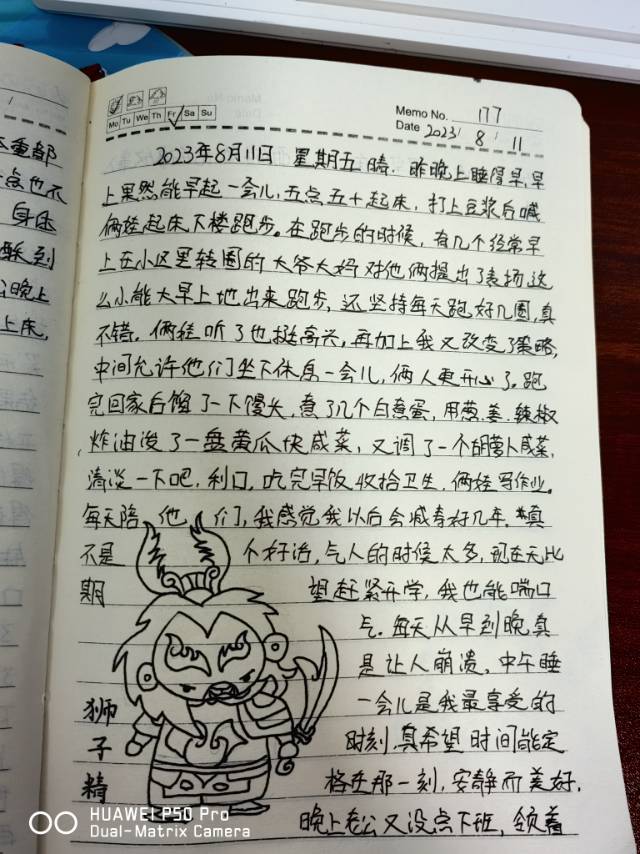 Memo No. 177
Mo Tu We Th Fr Sa Su
Date 2023 / 8 / 11
2023年8月11日 星期五 晴. 昨晚上睡得早,早
上果然能早起一会儿,五点五十起床,打上豆浆后喊
俩娃起床下楼跑步。在跑步的时候,有几个经常早
上在小区里转圈的大爷大妈对他俩提出了表扬,这
么小能大早上地出来跑步,还坚持每天跑好几圈,真
不错,俩娃听了也挺高兴,再加上我又改变了策略,
中间允许他们坐下休息一会儿,俩人更开心了。跑
完回家后馏了一下馒头,煮了几个白煮蛋,用葱、姜、辣椒
炸油泼了一盘黄瓜快咸菜,又调了一个胡萝卜咸菜,
清淡一下吧,利口,吃完早饭收拾卫生,俩娃写作业。
每天陪他们,我感觉我以后会减寿好几年,真
不是个好活,气人的时候太多,现在无比
期望赶紧开学,我也能喘口
气。每天从早到晚真
是让人崩溃,中午睡
一会儿是我最享受的
时刻,真希望时间能定
格在那一刻,安静而美好.
晚上老公又没点下班,领着
狮子精
本重部
点也不
身体
酥到
晚上
上床,
HUAWEI P50 Pro
Dual-Matrix Camera